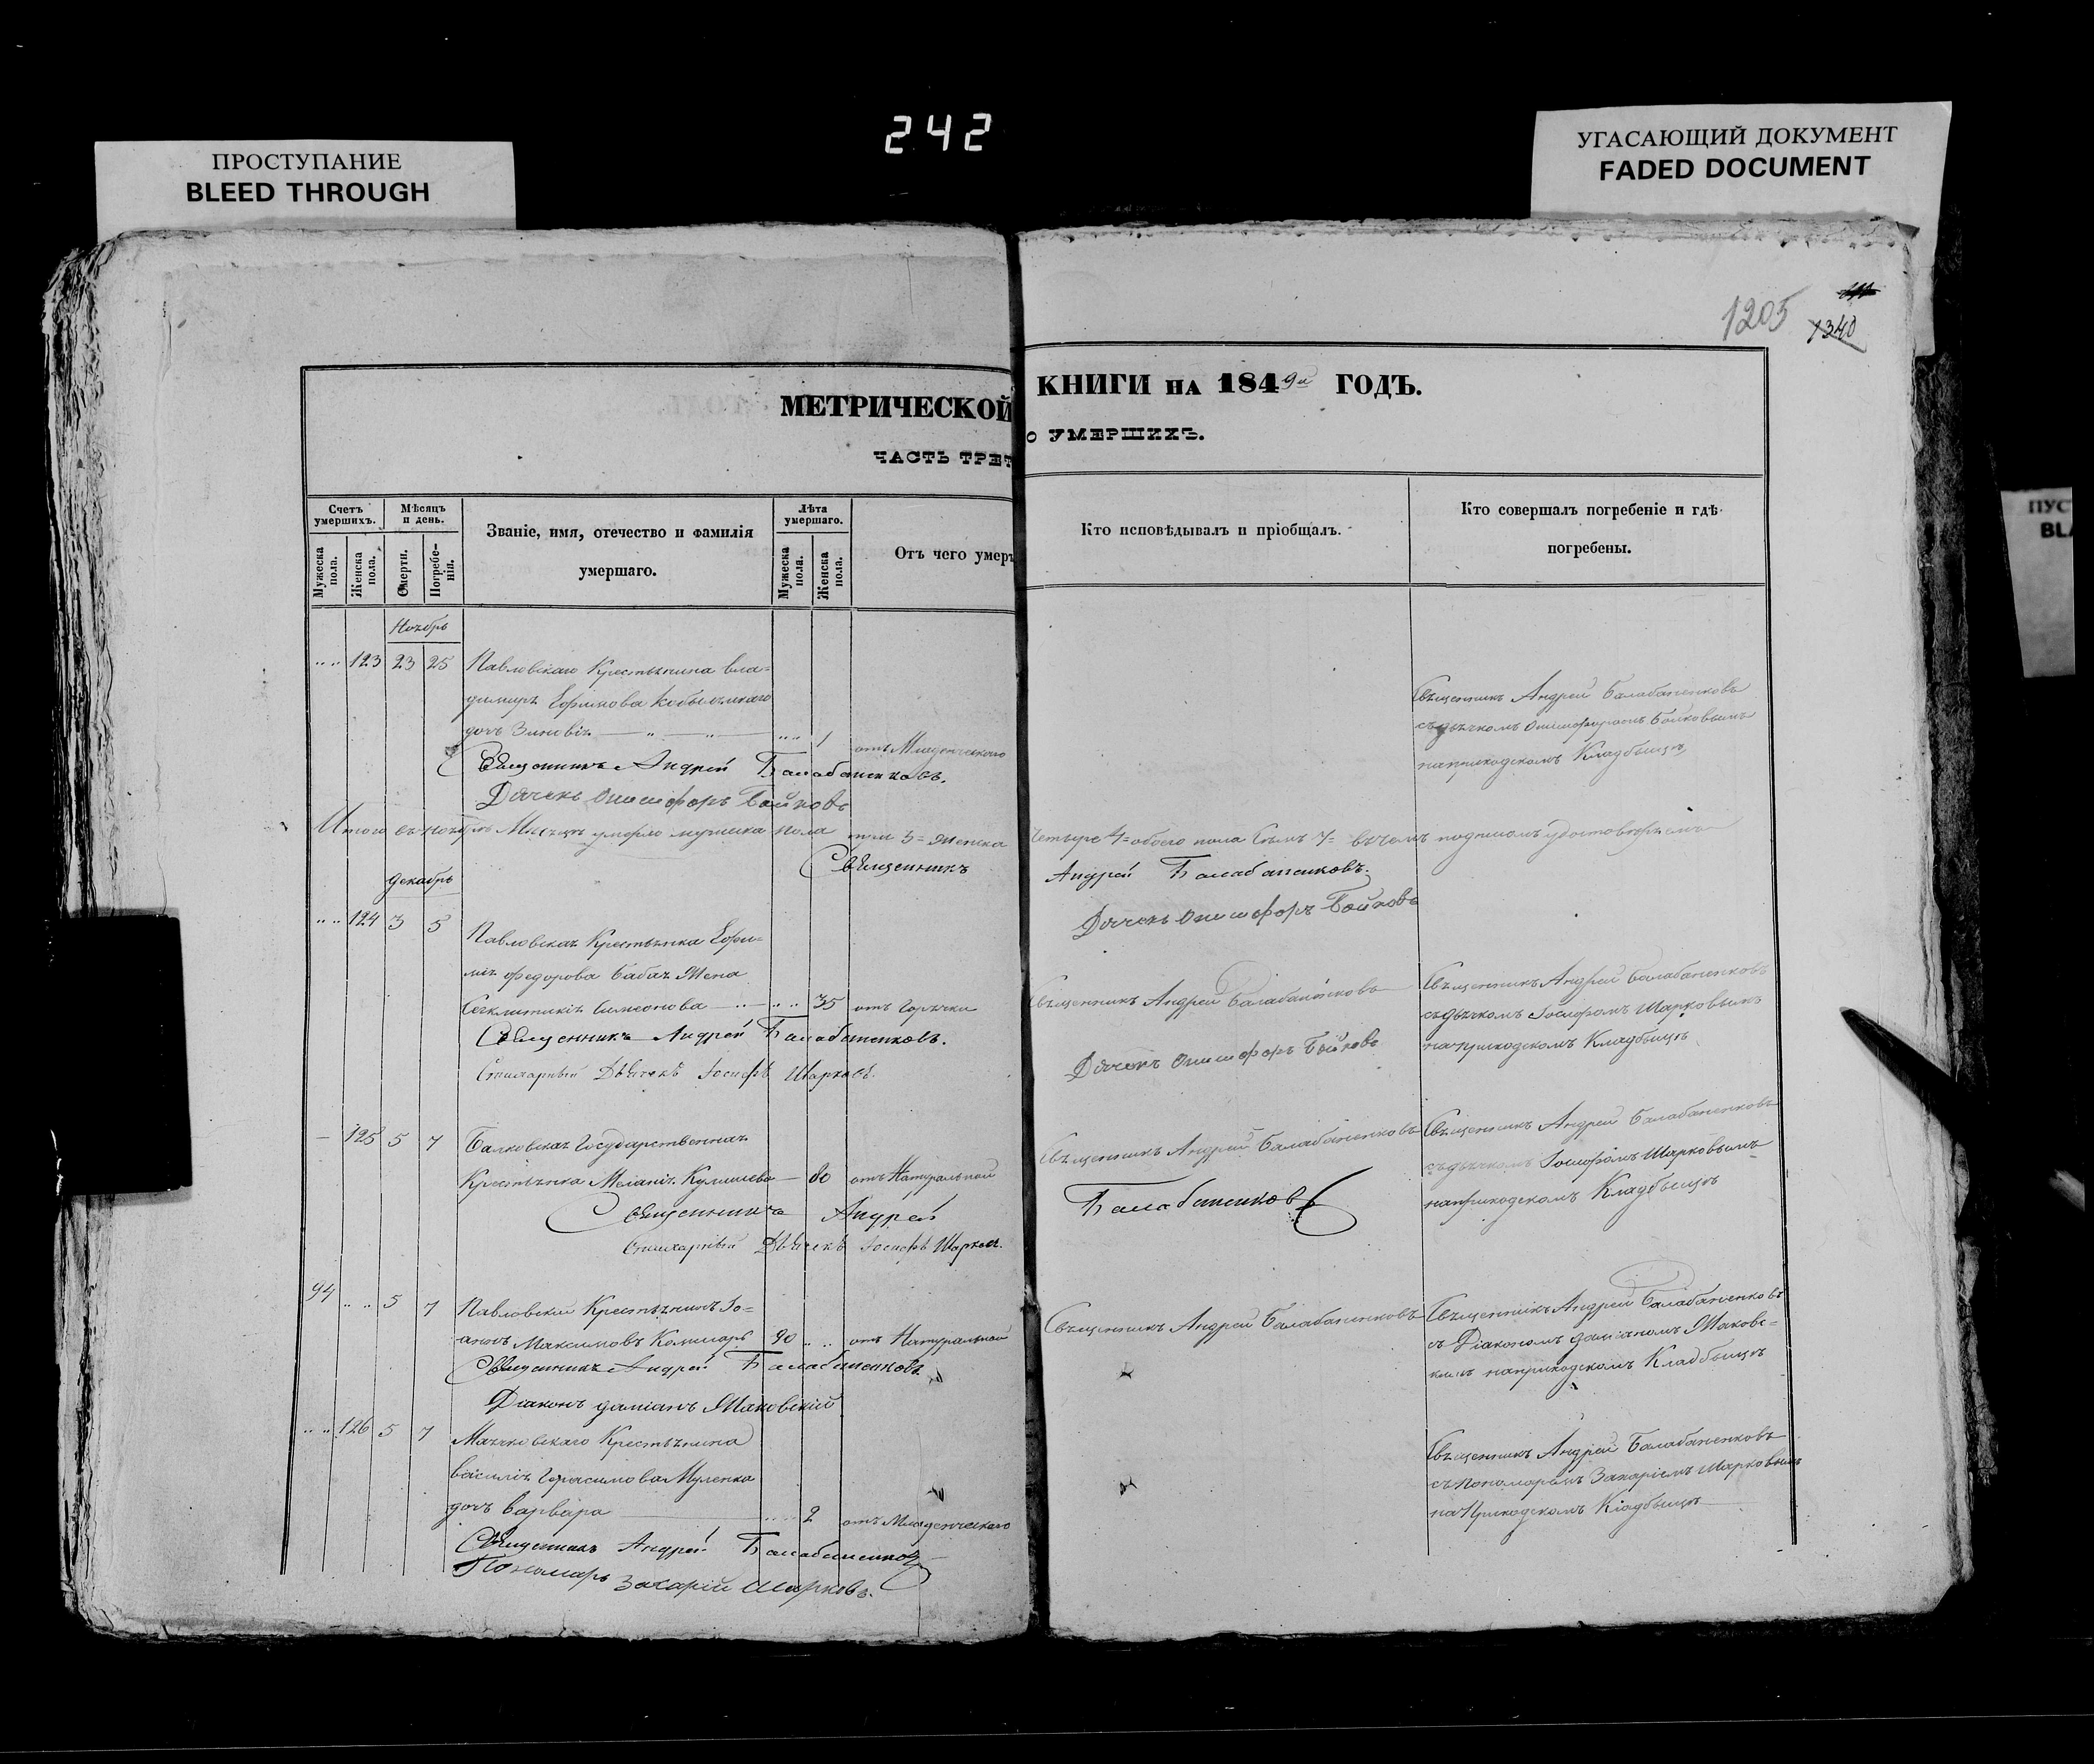 242
ПРОСТУПАНИЕ
BLEED THROUGH
УГАСАЮЩИЙ ДОКУМЕНТ
FADED DOCUMENT
ПУС
BLA
1205
1340
МЕТРИЧЕСКОЙ КНИГИ НА 1849й ГОДЪ.
ЧАСТЬ ТРЕТ О УМЕРШИХЪ.
Счетъ умершихъ.
Мужеска пола.
Женска пола.
Мѣсяцъ и день.
Смерти.
Погребе-
нія.
Званіе, имя, отечество и фамилія
умершаго.
Лѣта умершаго.
Мужеска пола.
Женска пола.
Отъ чего умеръ
Кто исповѣдывалъ и пріобщалъ.
Кто совершалъ погребеніе и гдѣ
погребены.
Ноябрь
123 23 25 Павловскаго Крестьянина Вла=
димира Ефимова
дочь Зиновія 1 отъ Младенческаго
Священникъ Андрей Балабаненковъ
съ дьячкомъ Онисифоромъ Бойковымъ
наприходскомъ Кладбищѣ
Священникъ Андрей Балабаненковъ.
Дячекъ Онисифоръ Бойковъ
Итого въ ноябрѣ Мѣсяцѣ умерло мужеска пола три 3= женска четыре 4= обоего пола Семь 7= въ чемъ подписомъ удостовѣряемъ
Священникъ Андрей Балабаненковъ.
Дячекъ Онисифоръ Бойковъ
Декабрь
124 3 5 Павловская Крестьянка Ефи=
мія Федорова Бабича Жена
Симеонова 35 отъ Горячки
Священникъ Андрей Балабаненковъ
Священникъ Андрей Балабаненковъ
съ дьячкомъ Іосифомъ Шарковымъ
наприходскомъ Кладбищѣ
Священникъ Андрей Балабаненковъ.
Стихарный Дьячекъ Іосифъ Шарковъ.
Дячекъ Онисифоръ Бойковъ
125 5 7 Балковская Государственная
Крестьянка Меланія 80 отъ Натуральной
Священникъ Андрей Балабаненковъ
Священникъ Андрей Балабаненковъ
съ дьячкомъ Іосифомъ Шарковымъ
наприходскомъ Кладбищѣ
Священникъ Андрей Балабаненковъ
Стихарный Дьячекъ Іосифъ Шарковъ.
94 5 7 Павловскій Крестьянинъ Іо=
аннъ Максимовъ 90 отъ Натуральной
Священникъ Андрей Балабаненковъ
Священникъ Андрей Балабаненковъ
съ Діакономъ Даміаномъ Маковс=
кимъ наприходскомъ Кладбищѣ
Священникъ Андрей Балабаненковъ
Діаконъ Даміанъ Маковскій
126 5 7 Маячковскаго Крестьянина
Василія Герасимова Муленка
дочь Варвара 2 отъ Младенческаго
Священникъ Андрей Балабаненковъ
съ Пономаремъ Захаріемъ Шарковымъ
на Приходскомъ Кладбищѣ
Священникъ Андрей Балабаненковъ
Пономарь Захарій Шарковъ.